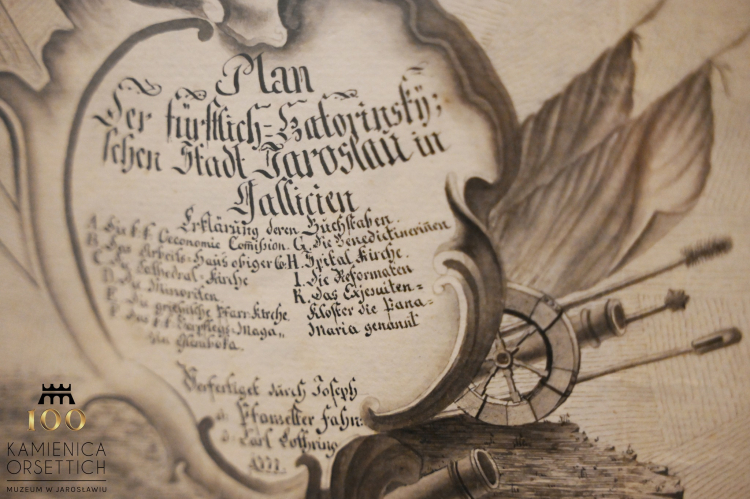 Plan
Der fürstlich=Zatorinsky:
schen Stadt Jaroslau in
Gallicien
Erklärung deren Buchstaben.
A. Die k.k. Oeconomie Comission.
B. Das Arbeits=Haus obiger Co:
C. Die Cathedral=Kirche
D. Die Minoriten
E. Die griechische Pfarr=Kirche.
F. Das k.k. Verpflegs=Maga„
G. Die Benedictinerinen
H. Spital Kirche.
I. Die Reformaten
K. Das Exjesuiten=
Kloster die Pana=
Maria genannt
Verfertiget durch Joseph
Fahn:
Carl Lothring
100
KAMIENICA
ORSETTICH
MUZEUM W JAROSŁAWIU